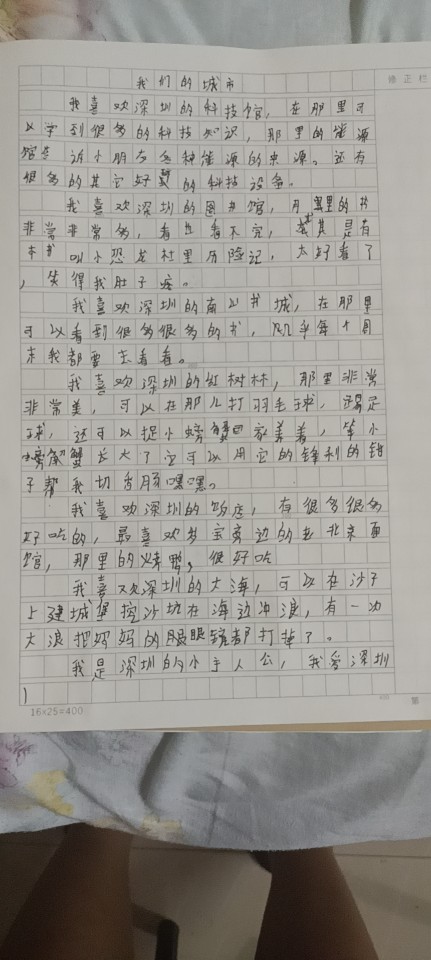 我们的城市
修正栏
我喜欢深圳的科技馆，在那里可
以学到很多的科技知识，那里的能源
馆告诉小朋友各种能源的来源。还有
很多的其它好的科技设备。
我喜欢深圳的图书馆，里的书
非常非常多，看也看不完，尤其是有
本书叫小恐龙村里历险记，太好看了
，笑得我肚子疼。
我喜欢深圳的南山书城，在那里
可以看到很多很多的书，几乎每个周
末我都要去看看。
我喜欢深圳的红树林，那里非常
非常美，可以在那儿打羽毛球，踢足
球，还可以捉小螃蟹回家养着，等小
螃蟹长大了它可以用它的锋利的钳
子帮我切香肠嘿嘿。
我喜欢深圳的饭店，有很多很多
好吃的，最喜欢梦宝旁边的老北京面
馆，那里的烤鸭，很好吃
我喜欢深圳的大海，可以在沙子
上建城堡挖沙坑在海边冲浪，有一次
大浪把妈妈的眼镜都打掉了。
我是深圳的小主人公，我爱深圳
！
16×25=400
第